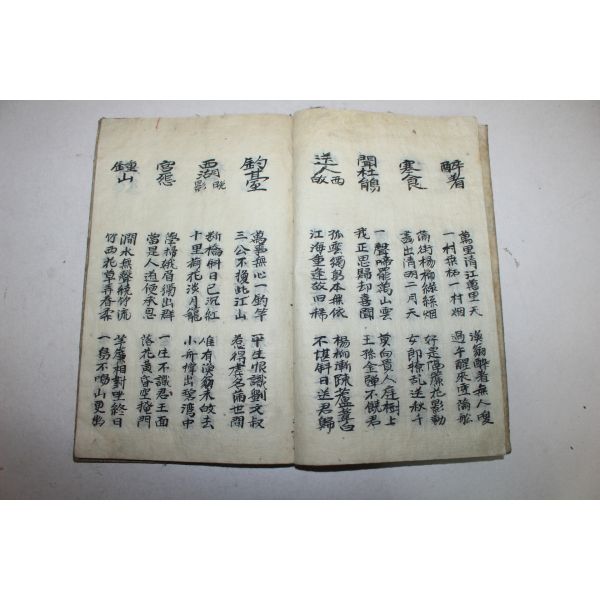 醉着
萬里清江萬里天
一村桑柘一村烟
漁翁醉着無人喚
過午醒來雪滿船
寒食
滿街楊柳綠絲烟
畫出清明二月天
好是隔簾花影動
女郎撩乱送秋千
聞杜鵑
一聲啼罷萬山雲
我正思歸却喜聞
莫向貴人庭樹上
王孫金彈不君
送人西皈
孤雲獨鳥本無依
江海重逢故旧稀
楊柳漸疎蘆葦白
不堪斜日送君歸
釣臺
萬事無心一釣竿
三公不換此江山
平生恨識劉文叔
惹得虛名滿世間
西湖晩影
斷橋斜日已沉紅
十里荷花淡月籠
唯有漁翁未皈去
小舟撐出碧灣中
宮怨
掃娥眉獨出群
當是人道便承恩
一生不識君王面
落花黃昏空掩門
鍾山
澗水無聲繞竹流
竹西花草弄春柔
茅簷相對坐終日
一鳥不鳴山更幽